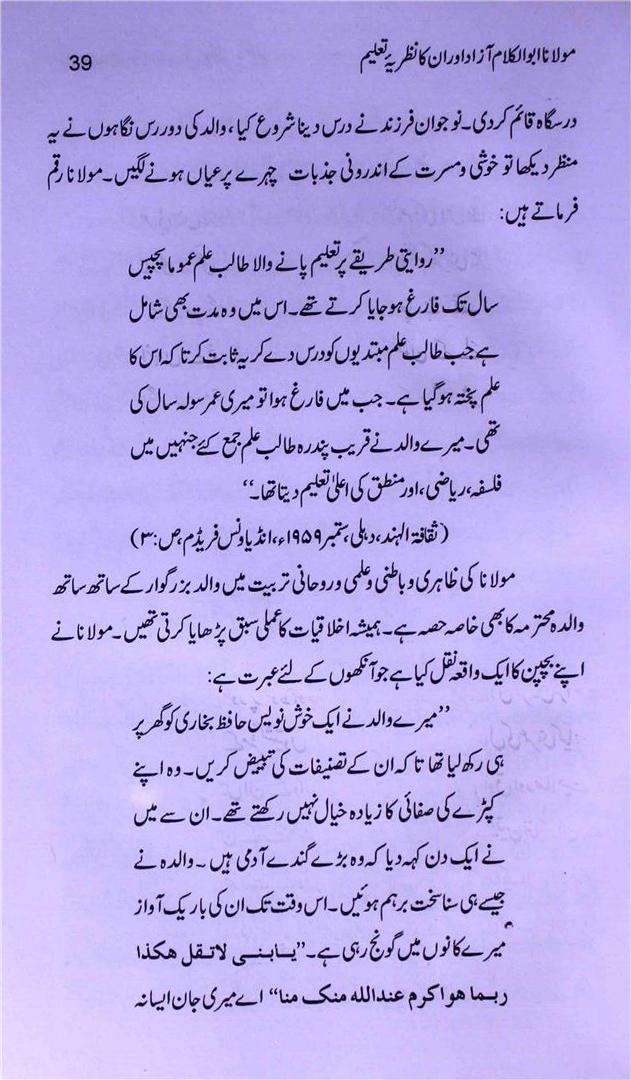 مولانا ابوالکلام آزاد اور ان کا نظریۂ تعلیم
39
درسگاہ قائم کردی۔ نوجوان فرزند نے درس دینا شروع کیا، والد کی دور رس نگاہوں نے یہ
منظر دیکھا تو خوشی ومسرت کے اندرونی جذبات چہرے پر عیاں ہونے لگیں۔ مولانا رقم
فرماتے ہیں:
’’روایتی طریقے پر تعلیم پانے والا طالب علم عموما پچیس
سال تک فارغ ہوجایا کرتے تھے۔ اس میں وہ مدت بھی شامل
ہے جب طالب علم مبتدیوں کو درس دے کر یہ ثابت کرتا کہ اس کا
علم پختہ ہوگیا ہے۔ جب میں فارغ ہوا تو میری عمر سولہ سال کی
تھی۔ میرے والد نے قریب پندرہ طالب علم جمع کئے جنہیں میں
فلسفہ، ریاضی، اور منطق کی اعلیٰ تعلیم دیتا تھا۔‘‘
(ثقافۃ الہند، دہلی، ستمبر ۱۹۵۹ء، انڈیا ونس فریڈم، ص:۳)
مولانا کی ظاہری و باطنی وعلمی وروحانی تربیت میں والد بزرگوار کے ساتھ ساتھ
والدہ محترمہ کا بھی خاصہ حصہ ہے۔ ہمیشہ اخلاقیات کا عملی سبق پڑھایا کرتی تھیں۔ مولانا نے
اپنے بچپن کا ایک واقعہ نقل کیا ہے جو آنکھوں کے لئے عبرت ہے:
’’میرے والد نے ایک خوش نویس حافظ بخاری کو گھر پر
ہی رکھ لیا تھا تاکہ ان کے تصنیفات کی تبییض کریں۔ وہ اپنے
کپڑے کی صفائی کا زیادہ خیال نہیں رکھتے تھے۔ ان سے میں
نے ایک دن کہہ دیا کہ وہ بڑے گندے آدمی ہیں۔ والدہ نے
جیسے ہی سنا سخت برہم ہوئیں۔ اس وقت تک ان کی باریک آواز
میرے کانوں میں گونج رہی ہے۔ ’’یابنی لاتقل هكذا
ربما هو اکرم عندالله منک منا‘‘ اے میری جان ایسا نہ